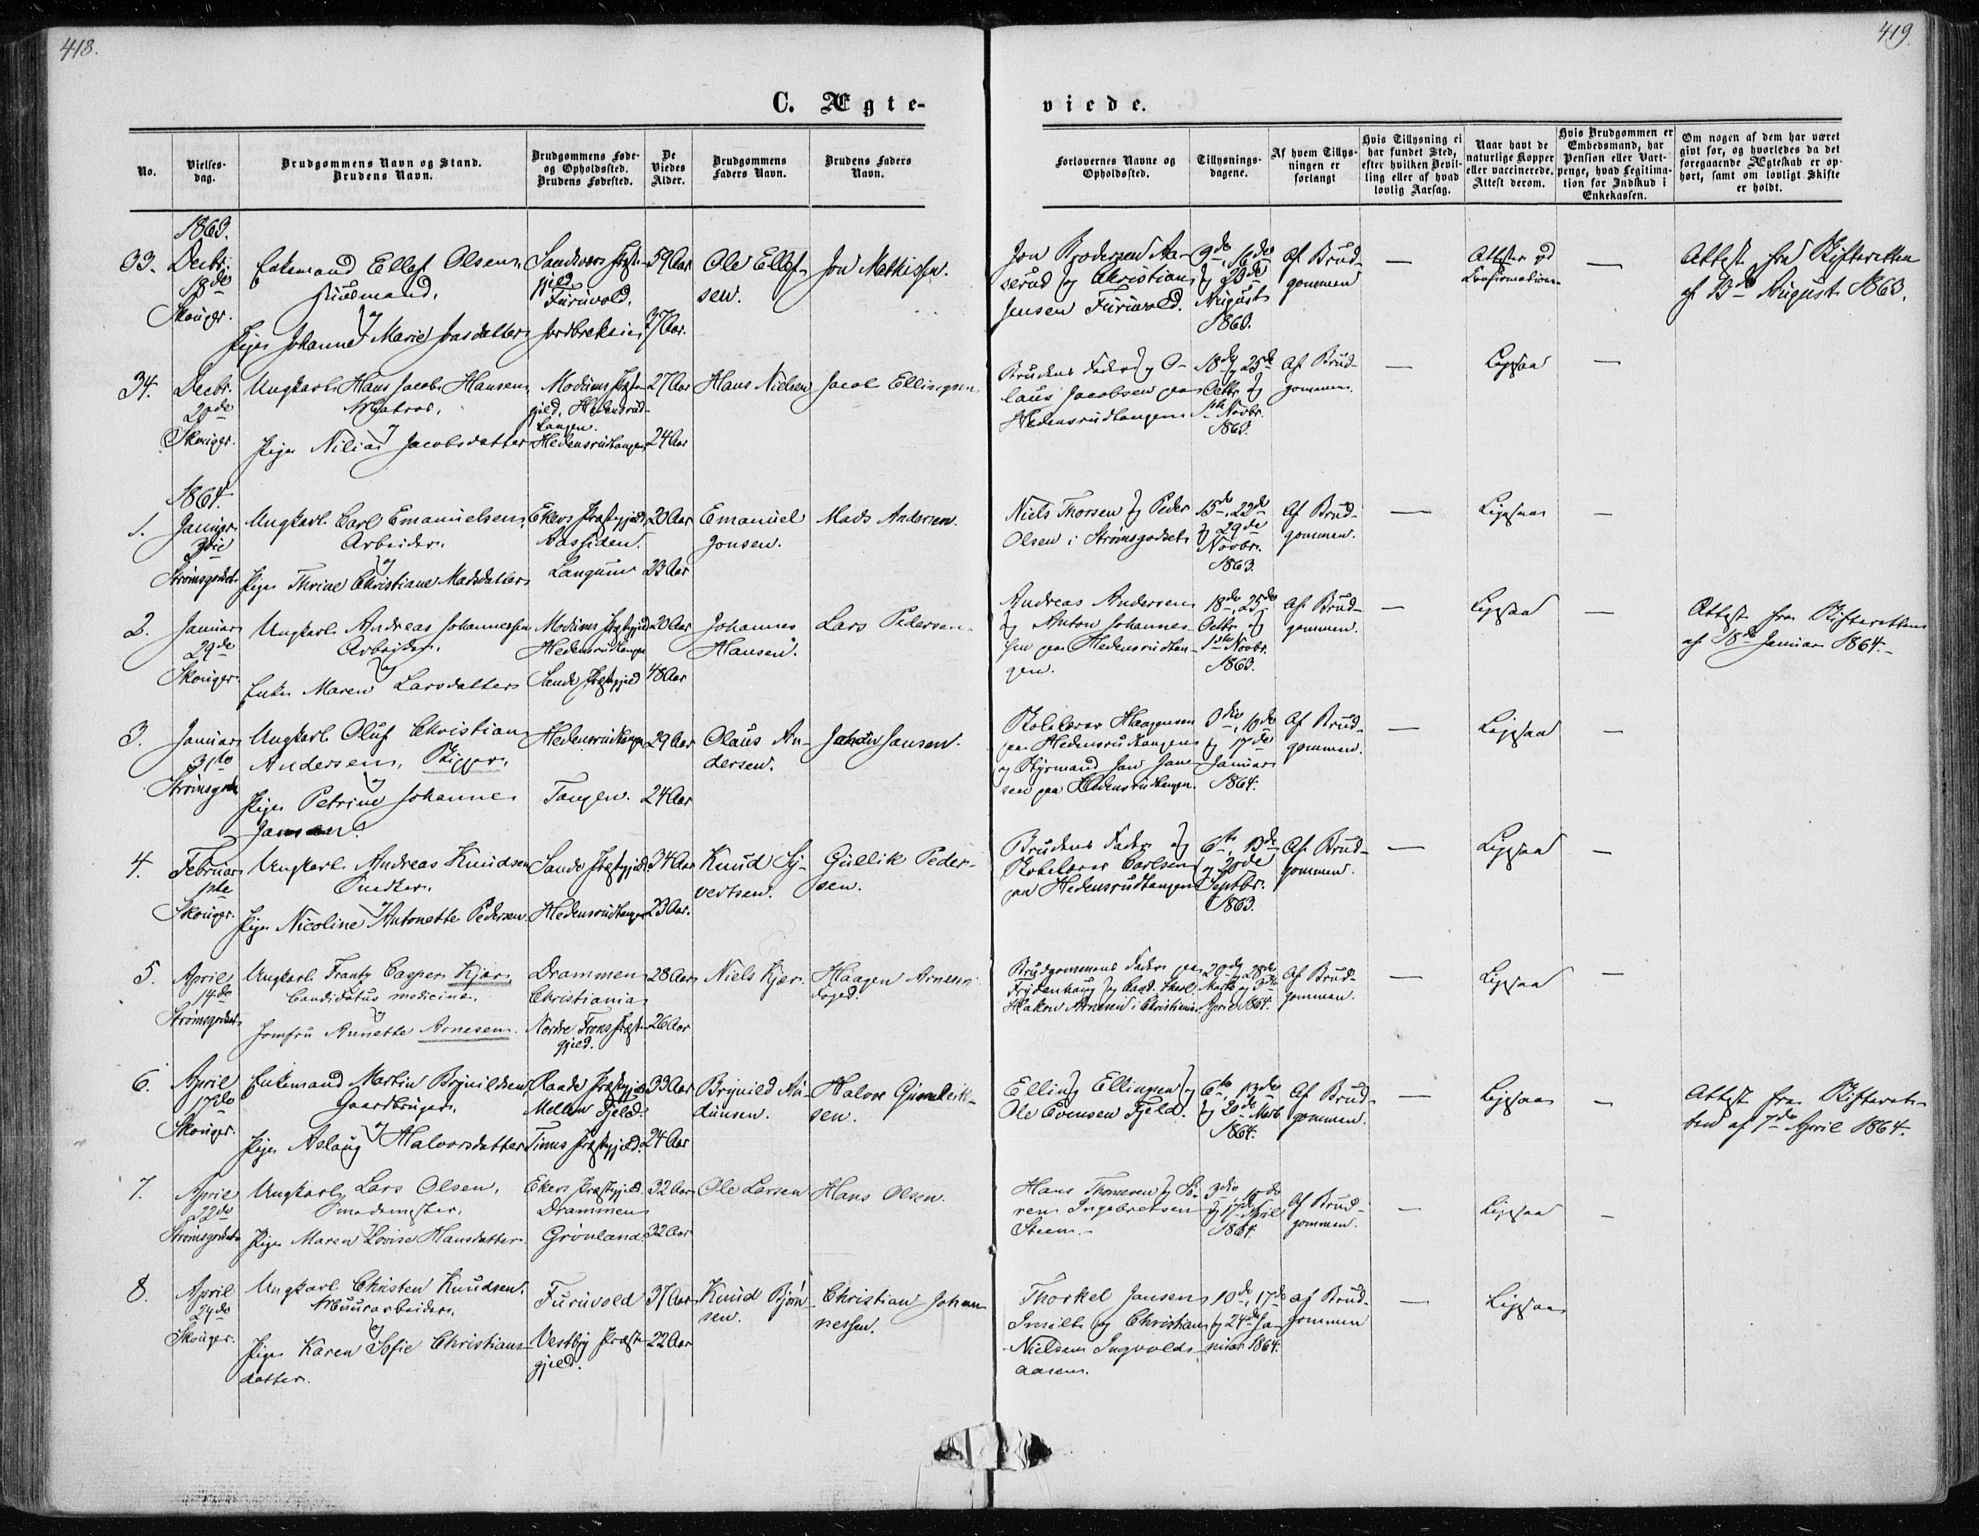 418.
419.
C. Ægte-
viede.
No.
Vielses-
dag.
Brudgommens Navn og Stand.
Brudens Navn.
Brudgommens Føde-
og Opholdssted.
Brudens Fødested.
De
Viedes
Alder.
Brudgommens
Faders Navn.
Brudens Faders
Navn.
Forlovernes Navne og
Opholdssted.
Tillysnings-
dagene.
Af hvem Tillys-
ningen er
forlangt
Hvis Tillysning ei
har fundet Sted,
efter hvilken Bevil-
ling eller af hvad
lovlig Aarsag.
Naar havt de
naturlige Kopper
eller vaccinerede.
Attest derom.
Hvis Brudgommen er
Embedsmand, har
Pension eller Vart-
penge, hvad Legitima-
tion for Indskud i
Enkekassen.
Om nogen af dem har været
givt før, og hvorledes da det
foregaaende Ægteskab er op-
hørt, samt om lovligt Skifte
er holdt.
1863.
33. Decbr. 18de Skouger.
Enkemand Ellef Olsen,
Huusmand,
og
Pige Johanne Marie Jonsdatter
gjeld
Furuvold,
59 Aar
37 Aar.
Ole Ellef-
sen.
Jon Mathissen.
Jon Brodersen Aa-
serud og Christian
Jensen Furuvold.
9de, 16de
og 23de
August
1863.
Af Brud-
gommen
—
Attester ved
Confirmationen
—
Attest fra Skifteretten
af 13de August 1863.
34. Decbr. 29de Skouger.
Ungkarl Hans Jacob Hansen,
Matros,
og
Pige Nilia Jacobsdatter
Modums Præste-
gjeld, Hedensrud-
tangen.
Hedensrudtangen
27 Aar
24 Aar
Hans Nielsen
Jacob Ellingsen
Brudens Fader og O-
laus Jacobsen paa
Hedensrudtangen
18de og 25de
Octbr. og
1ste Novbr.
1863.
Af Brud-
gommen.
—
Ligesaa
—
1864.
1. Januar 3die Strømsgodset
Ungkarl Carl Emanuelsen,
Arbeider,
og
Pige Thrine Christiane Madsdatter
Ekers Præstegjeld
Aassiden.
Langum
20 Aar
23 Aar
Emanuel
Jonsen.
Mads Andersen.
Niels Thorsen og Peder
Olsen i Strømsgodset
15de, 22de
og 29de
Novbr.
1863.
Af Brud-
gommen.
—
Ligesaa
—
2. Januar 29de Skouger.
Ungkarl Andreas Johannessen
Arbeider,
og
Enke Maren Larsdatter
Modums Præstegjeld
Hedensrudtangen
Sande Præstegjeld
20 Aar
48 Aar
Johannes
Hansen.
Lars Pedersen
Andreas Andersen
og Anton Johannes-
sen paa Hedensrudtan-
gen.
18de, 25de
Octbr. og
1ste Novbr.
1863.
Af Brud-
gommen.
—
Ligesaa
—
Attest fra Skifteretten
af 18de Januar 1864.-
3. Januar 31te Strømsgodset
Ungkarl Oluf Christian
Andersen, Skipper,
og
Pige Petrine Johanne
Jansen.
Hedensrudtangen
Tangen.
29 Aar
24 Aar
Olaus An-
dersen.
Jansen.
Haagensen
paa Hedensrudtangen
og Styrmand Jan Jan-
sen paa Hedensrudtangen.
3die, 10de
og 17de
Januar
1864.
Af Brud-
gommen.
—
Ligesaa
—
4. Februar 1ste Skouger.
Ungkarl Andreas Knudsen
Snedker,
og
Pige Nicoline Antonette Pedersen
Sande Præstegjeld
Hedensrudtangen
34 Aar
23 Aar.
Knud Sy-
vertsen.
Gullik Peder-
sen.
Brudens Fader og
Carlsen
paa Hedensrudtangen
6te, 13de
og 20de
Septbr.
1863.
Af Brud-
gommen.
—
Ligesaa
—
5. April 14de Strømsgodset
Ungkarl Frantz Casper Kjær,
Candidatus medicinæ,
og
Jomfru Annette Arnesen.
Drammen
Christiania
Nordre Frons Præste-
gjeld.
28 Aar
26 Aar
Niels Kjær.
Haagen Arnesen
Foged.
Brudgommens Fader paa
Frydenhaug og Cand. theol.
Hakon Arnesen i Christiania
20de og 28de
Marts og 3die
April 1864.
Af Brud-
gommen.
—
Ligesaa
—
6. April 17de Skouger.
Enkemand Martin Brynildsen
Gaardbruger,
og
Pige Aslaug Halvorsdatter
Raade Præstegjeld
Mellem Fjeld
Tinns Præstegjeld.
33 Aar
24 Aar
Brynild Au-
dunsen.
Halvor
sen.
Elling Ellingsen og
Ole Evensen Fjeld.
6te, 13de
og 20de Marts
1864.
Af Brud-
gommen.
—
Ligesaa
—
Attest fra Skifteret-
ten af 7de April 1864.
7. April 22de Strømsgodset
Ungkarl Lars Olsen,
Smedemester,
Pige Maren Lovise Hansdatter
Ekers Præstegjeld.
Drammen
Grønland
32 Aar
32 Aar
Ole Larsen
Hans Olsen.
Hans Thomesen og Sø-
ren Ingebretsen
Steen.-
3die, 10de
og 17de April
1864.
Af Brud-
gommen.
—
Ligesaa
—
8. April 24de Skouger.
Ungkarl Christen Knudsen,
Muurarbeider,
og
Pige Karen Sofie Christians-
datter.
Furuvold
Vestby Præste-
gjeld.
37 Aar
22 Aar
Knud Bjørn-
sen.
Christian Johan-
nessen.
Thorkel Jansen
Smilt og Christian
Nielsen Ingvolds-
aasen.
10de, 17de
og 24de Ja-
nuar 1864.
af Brud-
gommen
—
Ligesaa